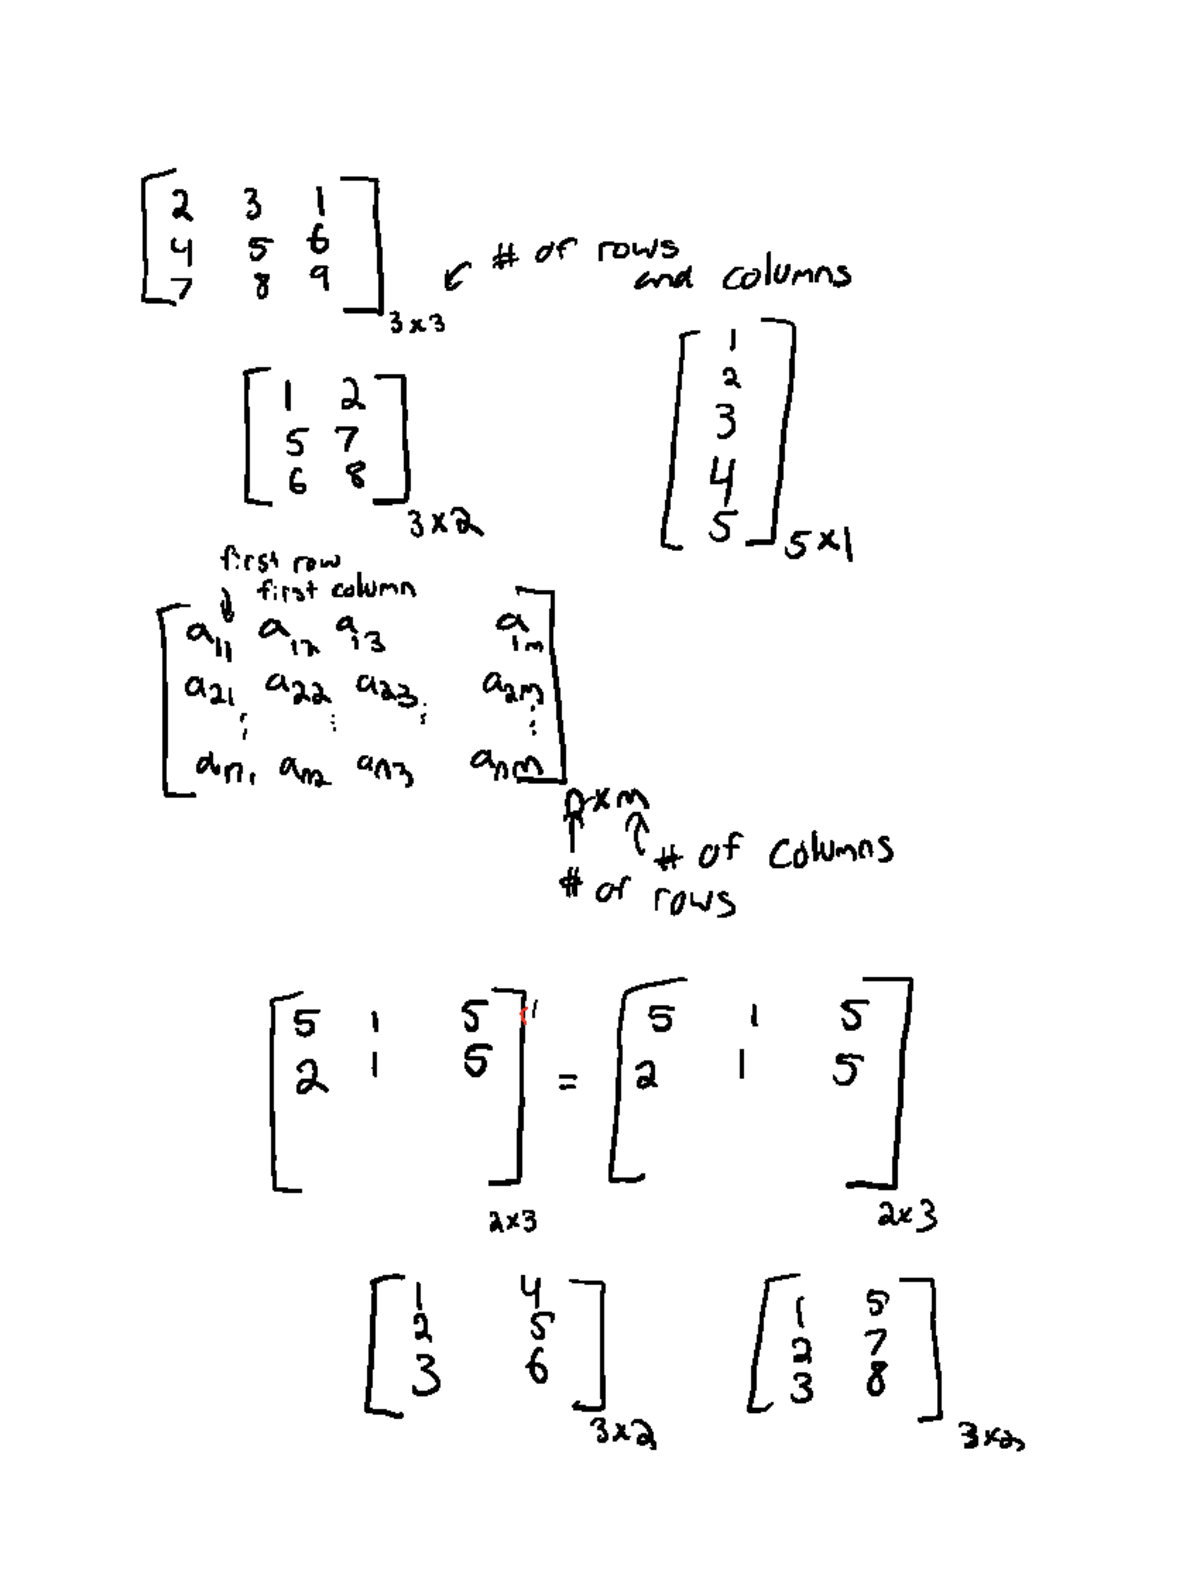 2 3 1
4 5 6
7 8 9
3x3
# of rows
and columns
1 2
5 7
6 8
3x2
1
2
3
4
5
5x1
first row
first column
a11 a12 a13 a1m
a21 a22 a23 a2m
⋮ ⋮ ⋮ ⋮
an1 an2 an3 anm
nxm
# of columns
# of rows
5 1 5
2 1 5
2x3
=
5 1 5
2 1 5
2x3
1 4
2 5
3 6
3x2
1 5
2 7
3 8
3x2